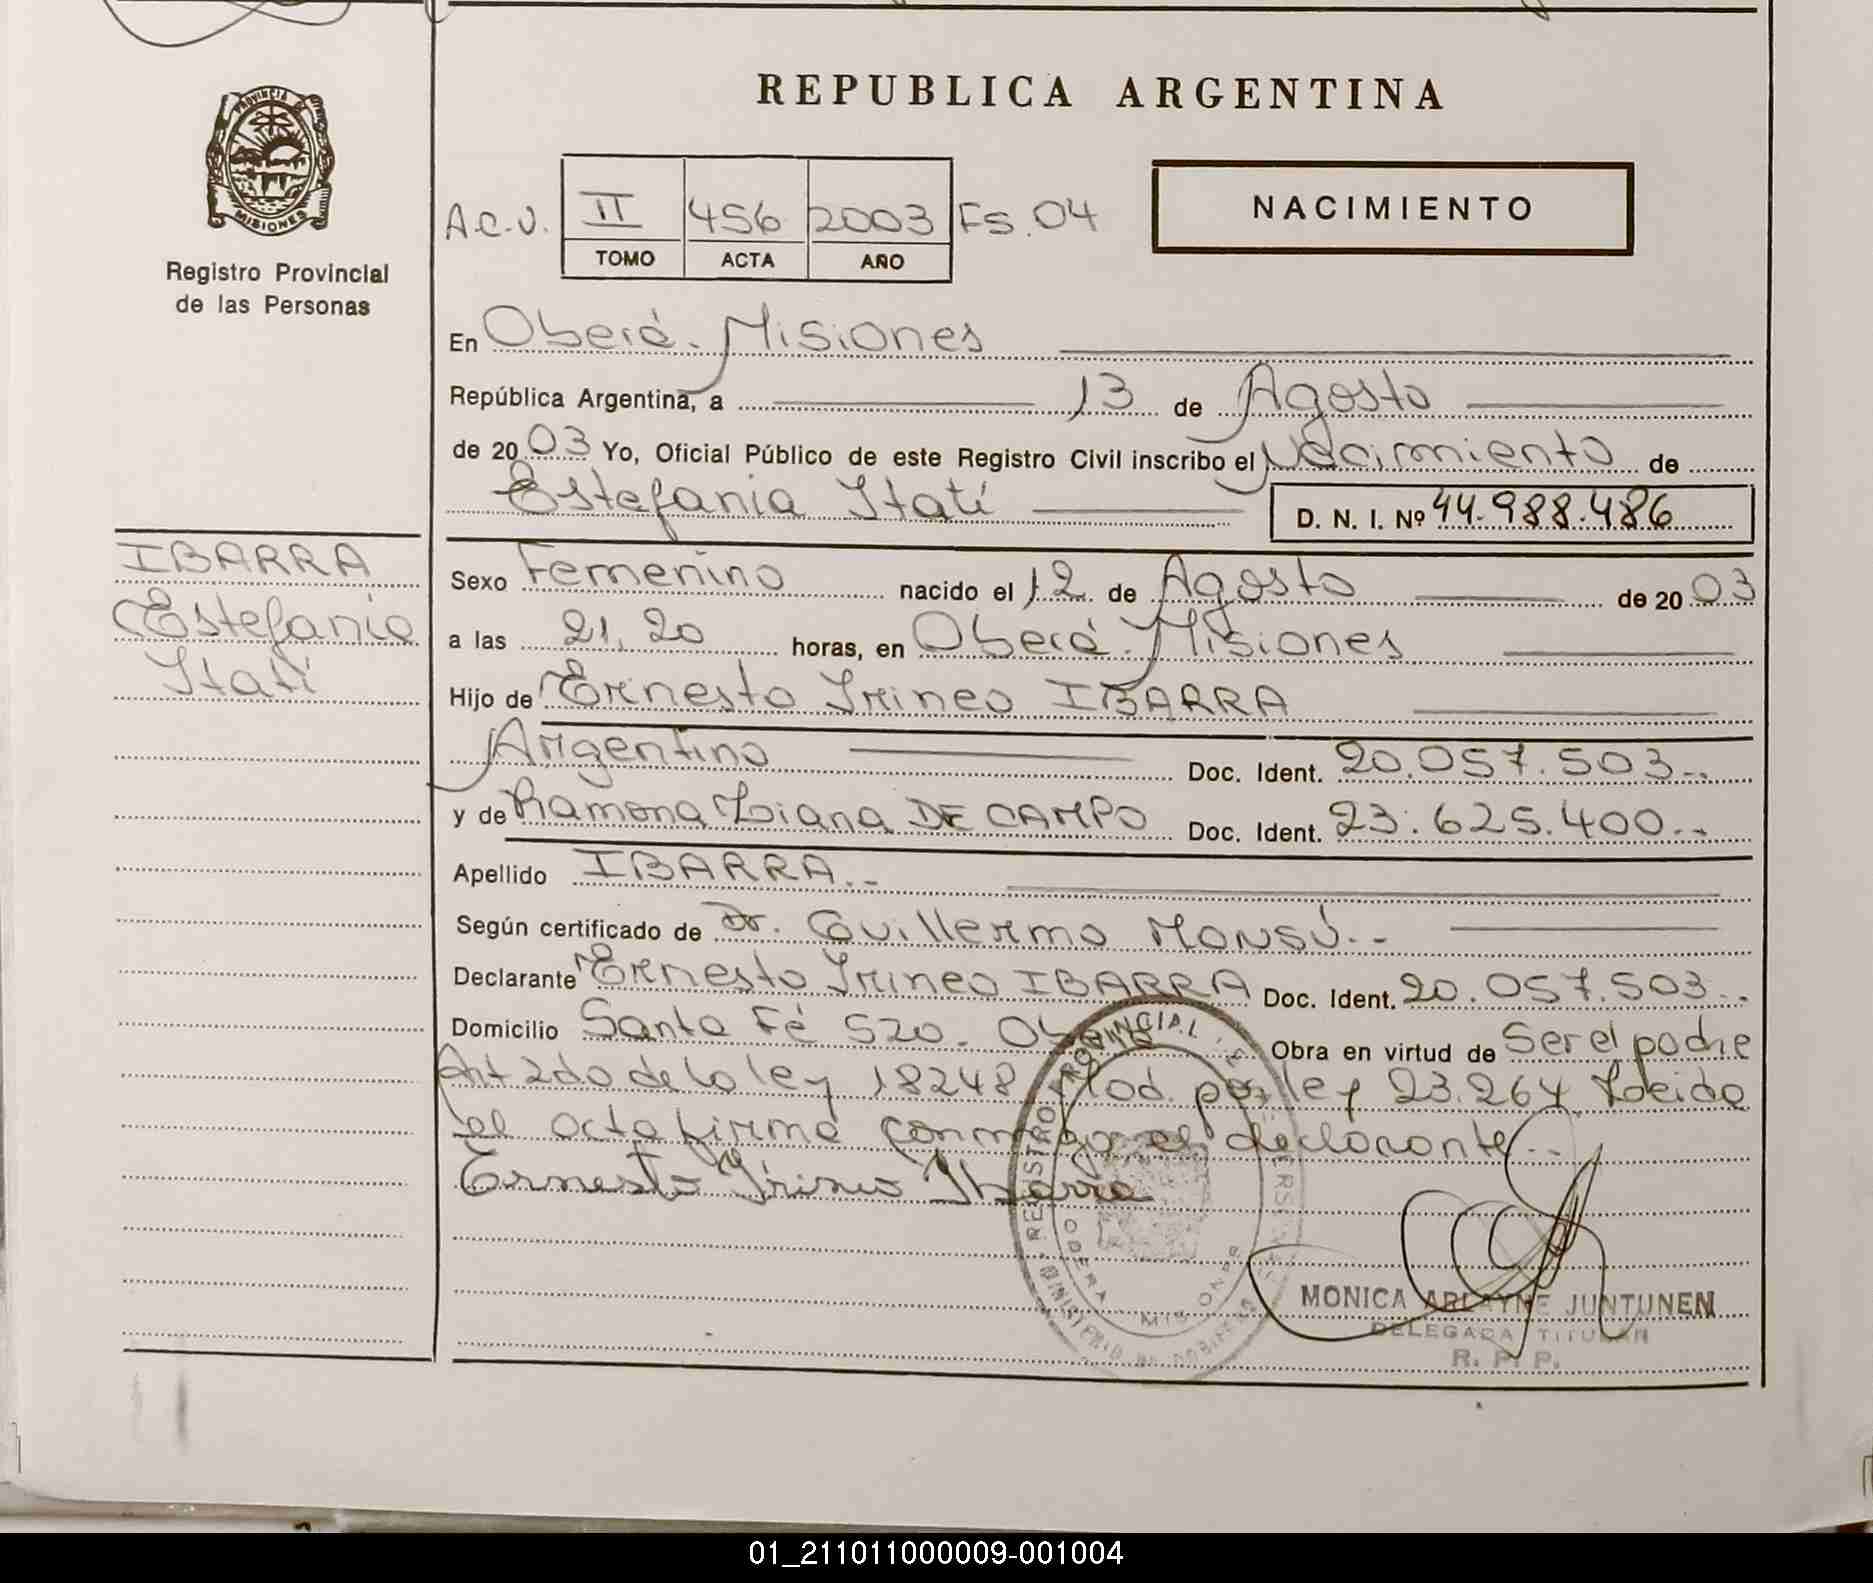 REPUBLICA ARGENTINA
PROVINCIA DE
MISIONES
Registro Provincial
de las Personas
A.C.V. II 456 2003 Fs. 04
TOMO ACTA AÑO
NACIMIENTO
En Oberá. Misiones
República Argentina, a 13 de Agosto
de 2003 Yo, Oficial Público de este Registro Civil inscribo el Nacimiento de
Estefania Itatí D. N. I. Nº 44.988.486
IBARRA
Estefania
Itatí
Sexo Femenino nacido el 12 de Agosto de 2003
a las 21,20 horas, en Oberá. Misiones
Hijo de Ernesto Irineo IBARRA
Argentino Doc. Ident. 20.057.503..
y de Ramona Liana DE CAMPO Doc. Ident. 23.625.400..
Apellido IBARRA.-
Según certificado de Dr. Guillermo MONSÚ.-
Declarante Ernesto Irineo IBARRA Doc. Ident. 20.057.503..
Domicilio Santa Fé 520. Oberá Obra en virtud de Ser el padre
Art 2do de la ley 18248 Mod. por ley 23.264 Leida
el acta firma conmigo el declarante.-
Ernesto Irineo Ibarra
REGISTRO PROVINCIAL DE
OBERA MISIONES
MINISTERIO DE GOBIERNO
MONICA ARLAYNE JUNTUNEN
DELEGADA TITULAR
R. P. P.
01_211011000009-001004